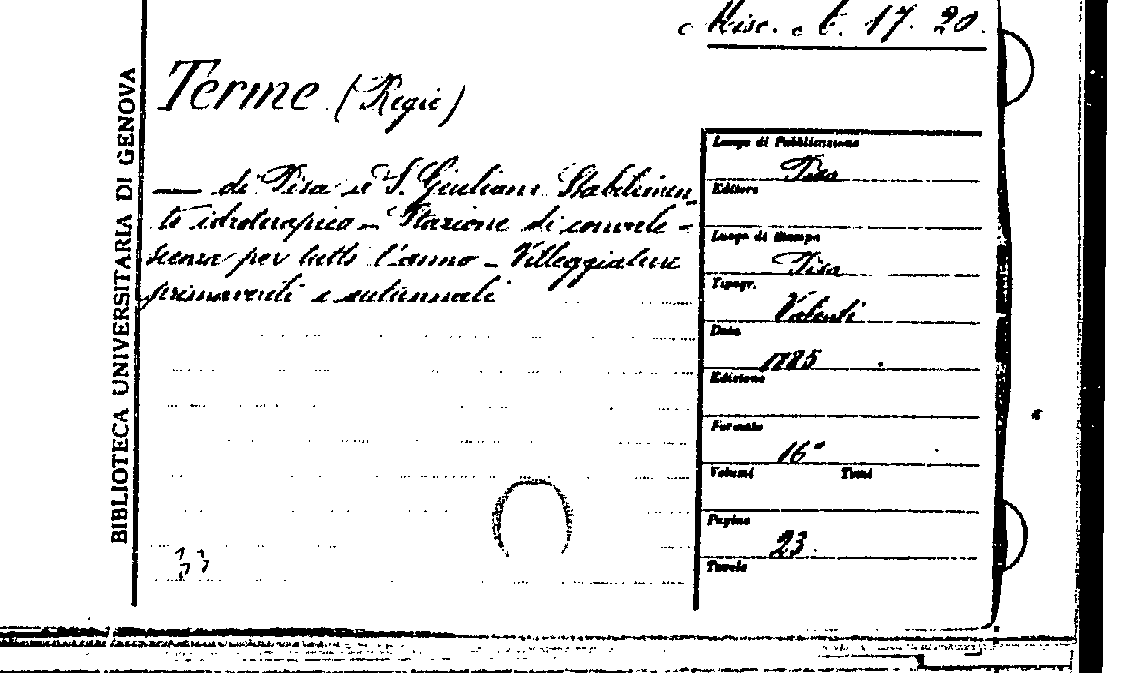 Misc. A. 17. 20.
BIBLIOTECA UNIVERSITARIA DI GENOVA
Terme (Regie)
— di Pisa a S. Giuliani Stabilimen-
to idroterapico - Stazione di convale-
scenza per tutto l'anno - Villeggiature
primaverili e autunnali
33
Luogo di Pubblicazione
Pisa
Editore
Luogo di Stampa
Pisa
Tipogr.
Valenti
Data
1885
Edizione
Formato
16°
Volumi Tomi
Pagine
23.
Tavole